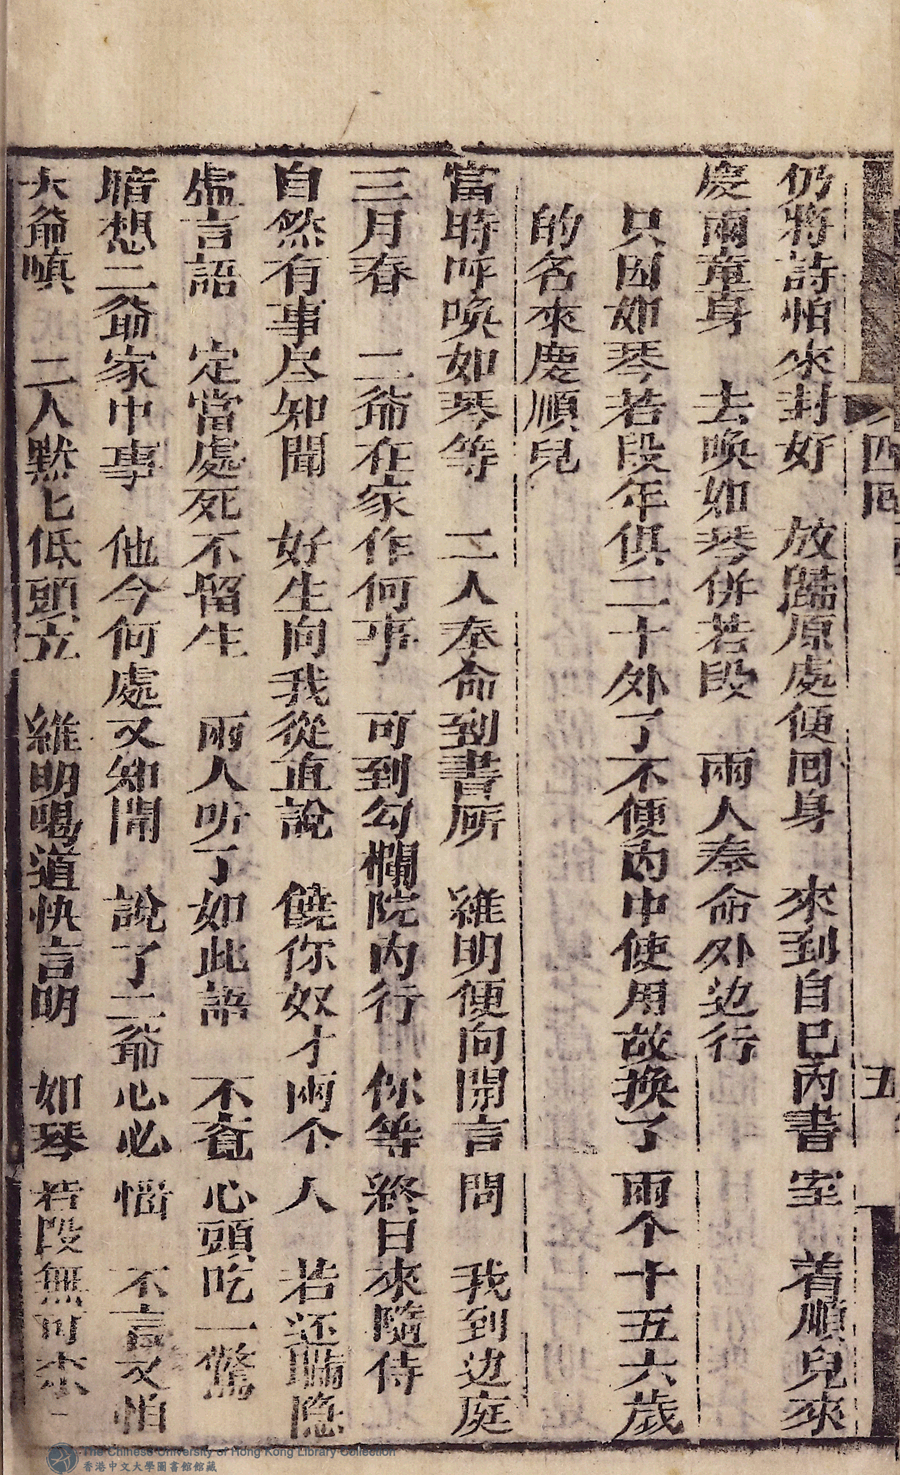 四囘
五
仍將詩怕來封好　放歸原處便囬身　來到自已內書室　着順兒來
慶兩童身　去喚如琴併若段　兩人奉命外边行
只因如琴若段年俱二十外了不便內中使用故換了兩个十五六歲
的名來慶順兒
當時呼喚如琴等　二人奉命到書㕔　維明便向開言問　我到边庭
三月春　二爺在家作何事　可到勾欄院內行　你等終日來隨侍
自然有事尽知聞　好生向我從直說　饒你奴才兩个人　若还瞞隐
虛言語　定當處死不留生　兩人听了如此語　不覔心頭吃一驚
暗想二爺家中事　他今何處又知聞　說了二爺心必惱　不言又怕
大爺嗔　二人黙匕低頭立　維明喝道快言明　如琴若段無可奈
The Chinese University of Hong Kong Library Collection
香港中文大學圖書館館藏